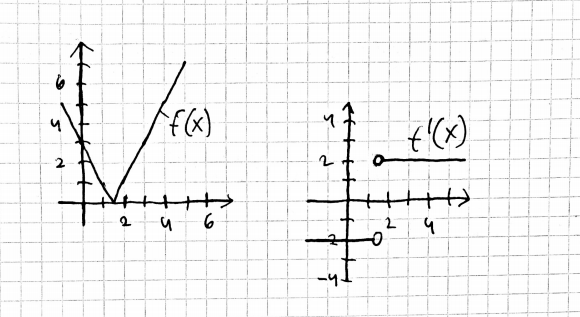 6
4
2
2 4 6
f(x)
4
2
2 4
-2
-4
f'(x)